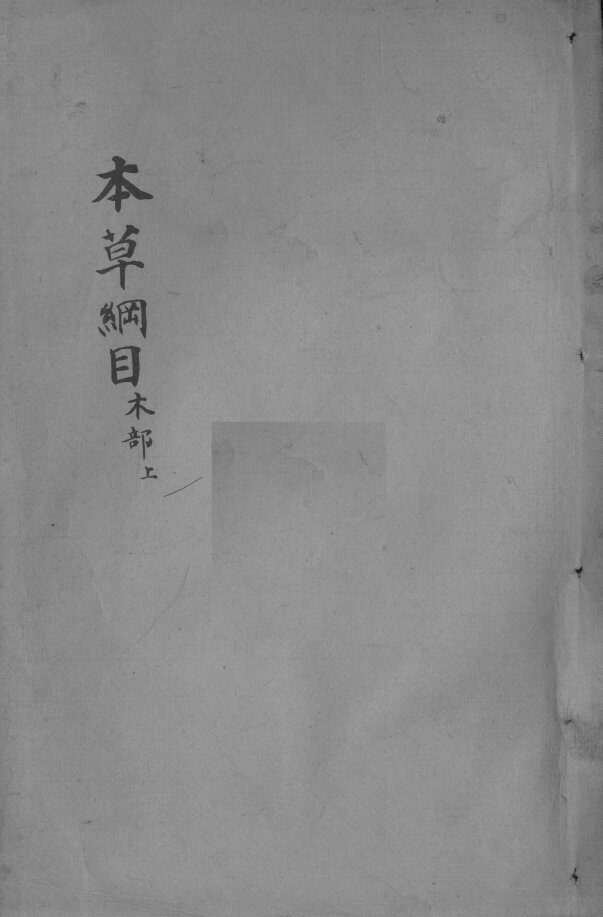 本草綱目木部上